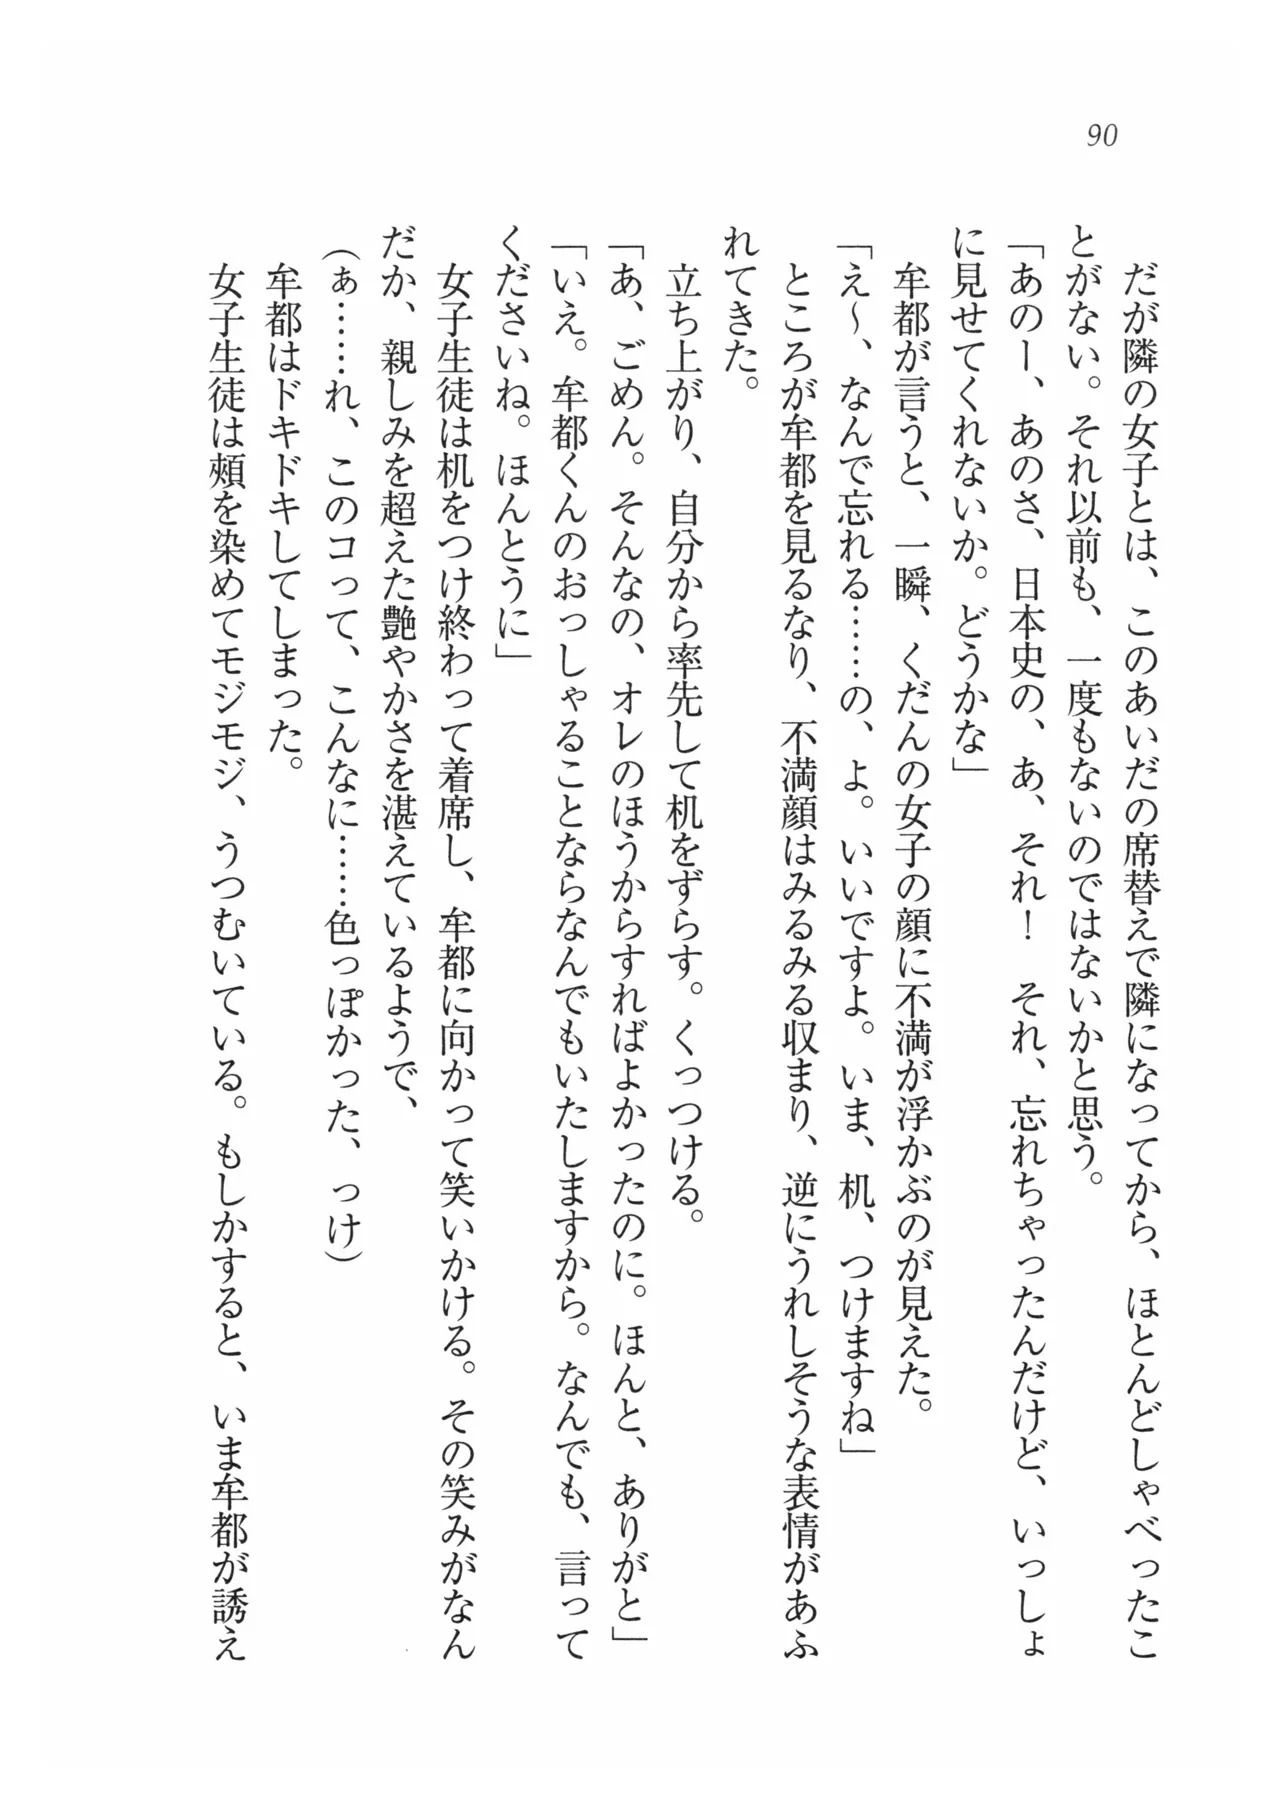 90
　だが隣の女子とは、このあいだの席替えで隣になってから、ほとんどしゃべったこ
とがない。それ以前も、一度もないのではないかと思う。
「あのー、あのさ、日本史の、あ、それ！　それ、忘れちゃったんだけど、いっしょ
に見せてくれないか。どうかな」
　牟都が言うと、一瞬、くだんの女子の顔に不満が浮かぶのが見えた。
「え～、なんで忘れる……の、よ。いいですよ。いま、机、つけますね」
　ところが牟都を見るなり、不満顔はみるみる収まり、逆にうれしそうな表情があふ
れてきた。
　立ち上がり、自分から率先して机をずらす。くっつける。
「あ、ごめん。そんなの、オレのほうからすればよかったのに。ほんと、ありがと」
「いえ。牟都くんのおっしゃることならなんでもいたしますから。なんでも、言って
くださいね。ほんとうに」
　女子生徒は机をつけ終わって着席し、牟都に向かって笑いかける。その笑みがなん
だか、親しみを超えた艶やかさを湛えているようで、
（ぁ……れ、このコって、こんなに……色っぽかった、っけ）
　牟都はドキドキしてしまった。
　女子生徒は頰を染めてモジモジ、うつむいている。もしかすると、いま牟都が誘え